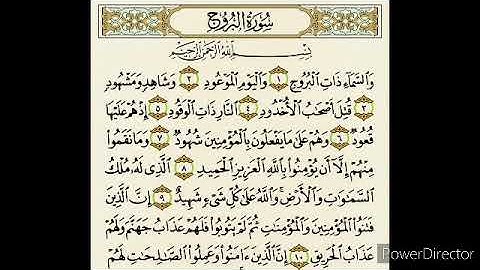 سُورَةُ الْبُرُوجِ
بِسْمِ اللَّهِ الرَّحْمَٰنِ الرَّحِيمِ
وَالسَّمَاءِ ذَاتِ الْبُرُوجِ ١ وَالْيَوْمِ الْمَوْعُودِ ٢ وَشَاهِدٍ وَمَشْهُودٍ
٣ قُتِلَ أَصْحَابُ الْأُخْدُودِ ٤ النَّارِ ذَاتِ الْوَقُودِ ٥ إِذْ هُمْ عَلَيْهَا
قُعُودٌ ٦ وَهُمْ عَلَىٰ مَا يَفْعَلُونَ بِالْمُؤْمِنِينَ شُهُودٌ ٧ وَمَا نَقَمُوا
مِنْهُمْ إِلَّا أَن يُؤْمِنُوا بِاللَّهِ الْعَزِيزِ الْحَمِيدِ ٨ الَّذِي لَهُ مُلْكُ
السَّمَاوَاتِ وَالْأَرْضِ ۚ وَاللَّهُ عَلَىٰ كُلِّ شَيْءٍ شَهِيدٌ ٩ إِنَّ الَّذِينَ
فَتَنُوا الْمُؤْمِنِينَ وَالْمُؤْمِنَاتِ ثُمَّ لَمْ يَتُوبُوا فَلَهُمْ عَذَابُ جَهَنَّمَ وَلَهُمْ
عَذَابُ الْحَرِيقِ ١٠ إِنَّ الَّذِينَ ءَامَنُوا وَعَمِلُوا الصَّالِحَاتِ لَهُمْ
PowerDirector